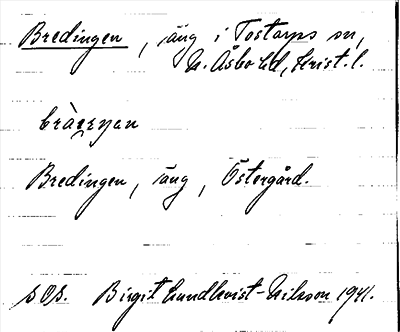 Bredingen, äng i Tostarps sn,
N. Åsbo hd, Krist. l.
Bredingen, äng, Östergård.
SOS. Birgit Lundkvist-Nilsson 1941.